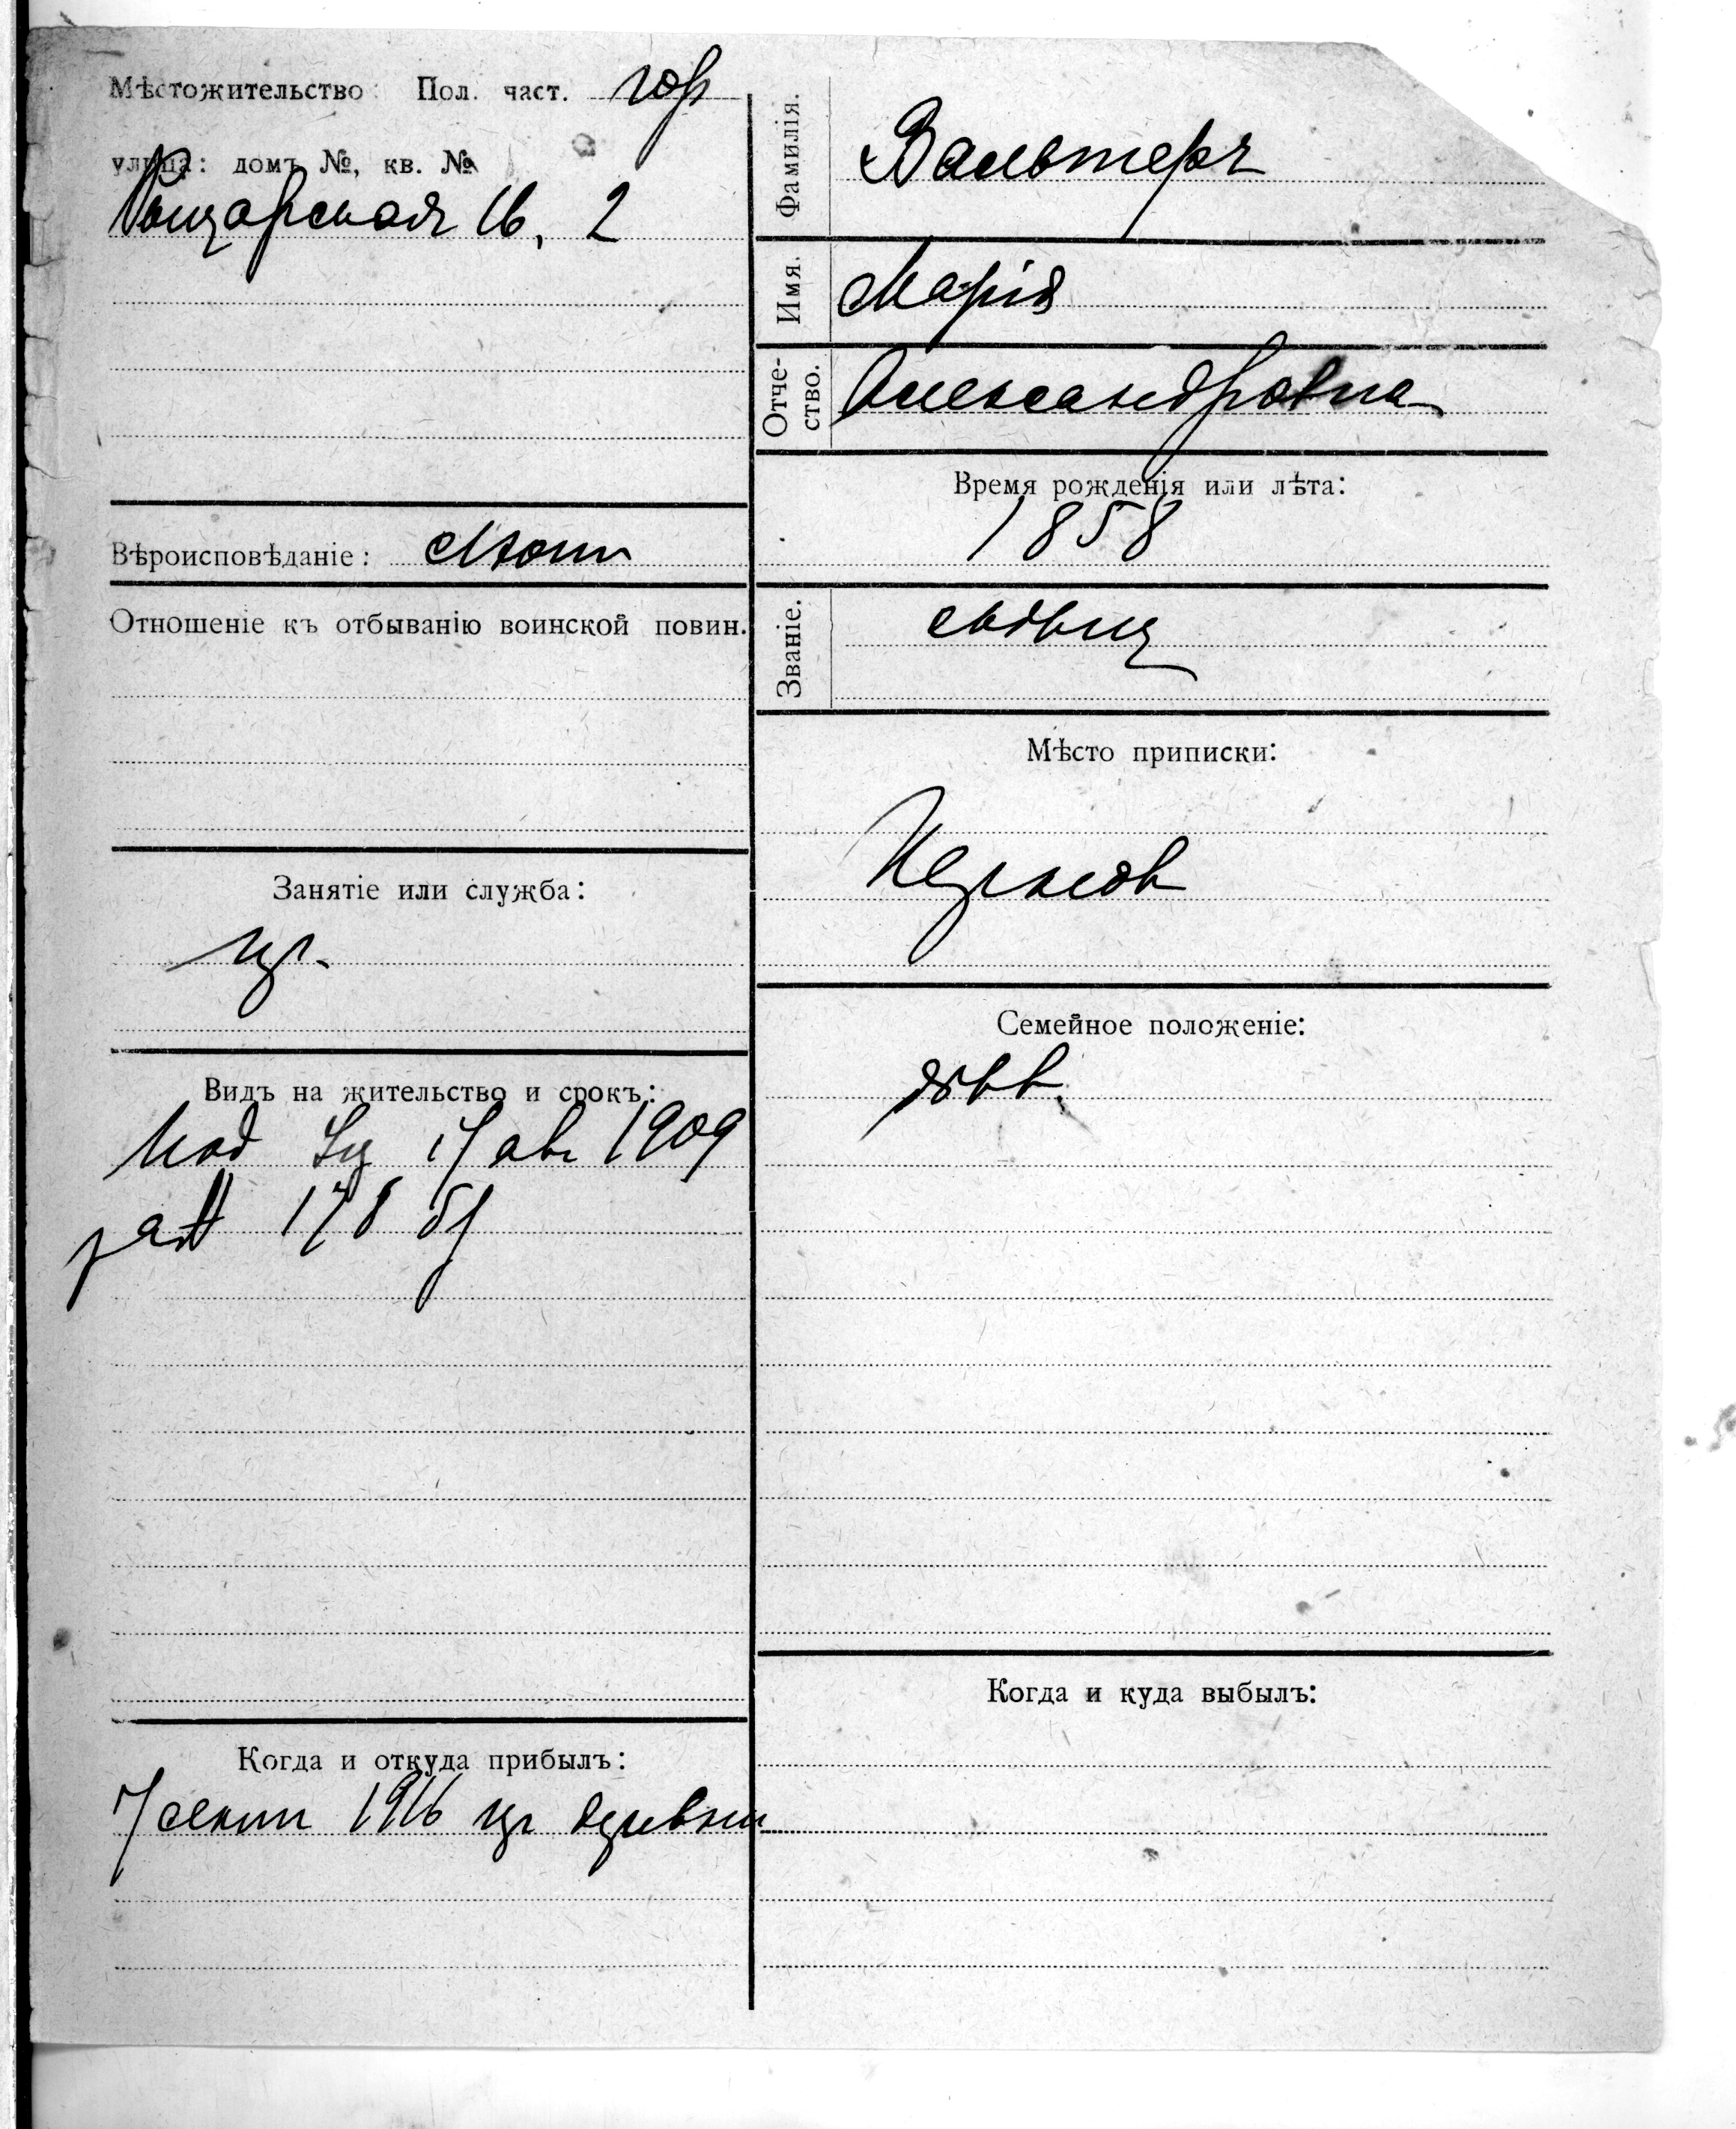 Мѣстожительство: Пол. част. гор
улица: домъ №, кв. №
Рыцарская 16, 2
Вѣроисповѣданіе: Лют
Отношеніе къ отбыванію воинской повин.
Занятіе или служба:
Видъ на жительство и срокъ:
17 авг 1909
178
Когда и откуда прибылъ:
7 сент 1916 из деревни
Фамилія.
Вальтеръ
Имя.
Марія
Отче-
ство.
Александровна
Время рожденія или лѣта:
1858
Званіе.
Мѣсто приписки:
Семейное положеніе:
дѣв.
Когда и куда выбылъ: